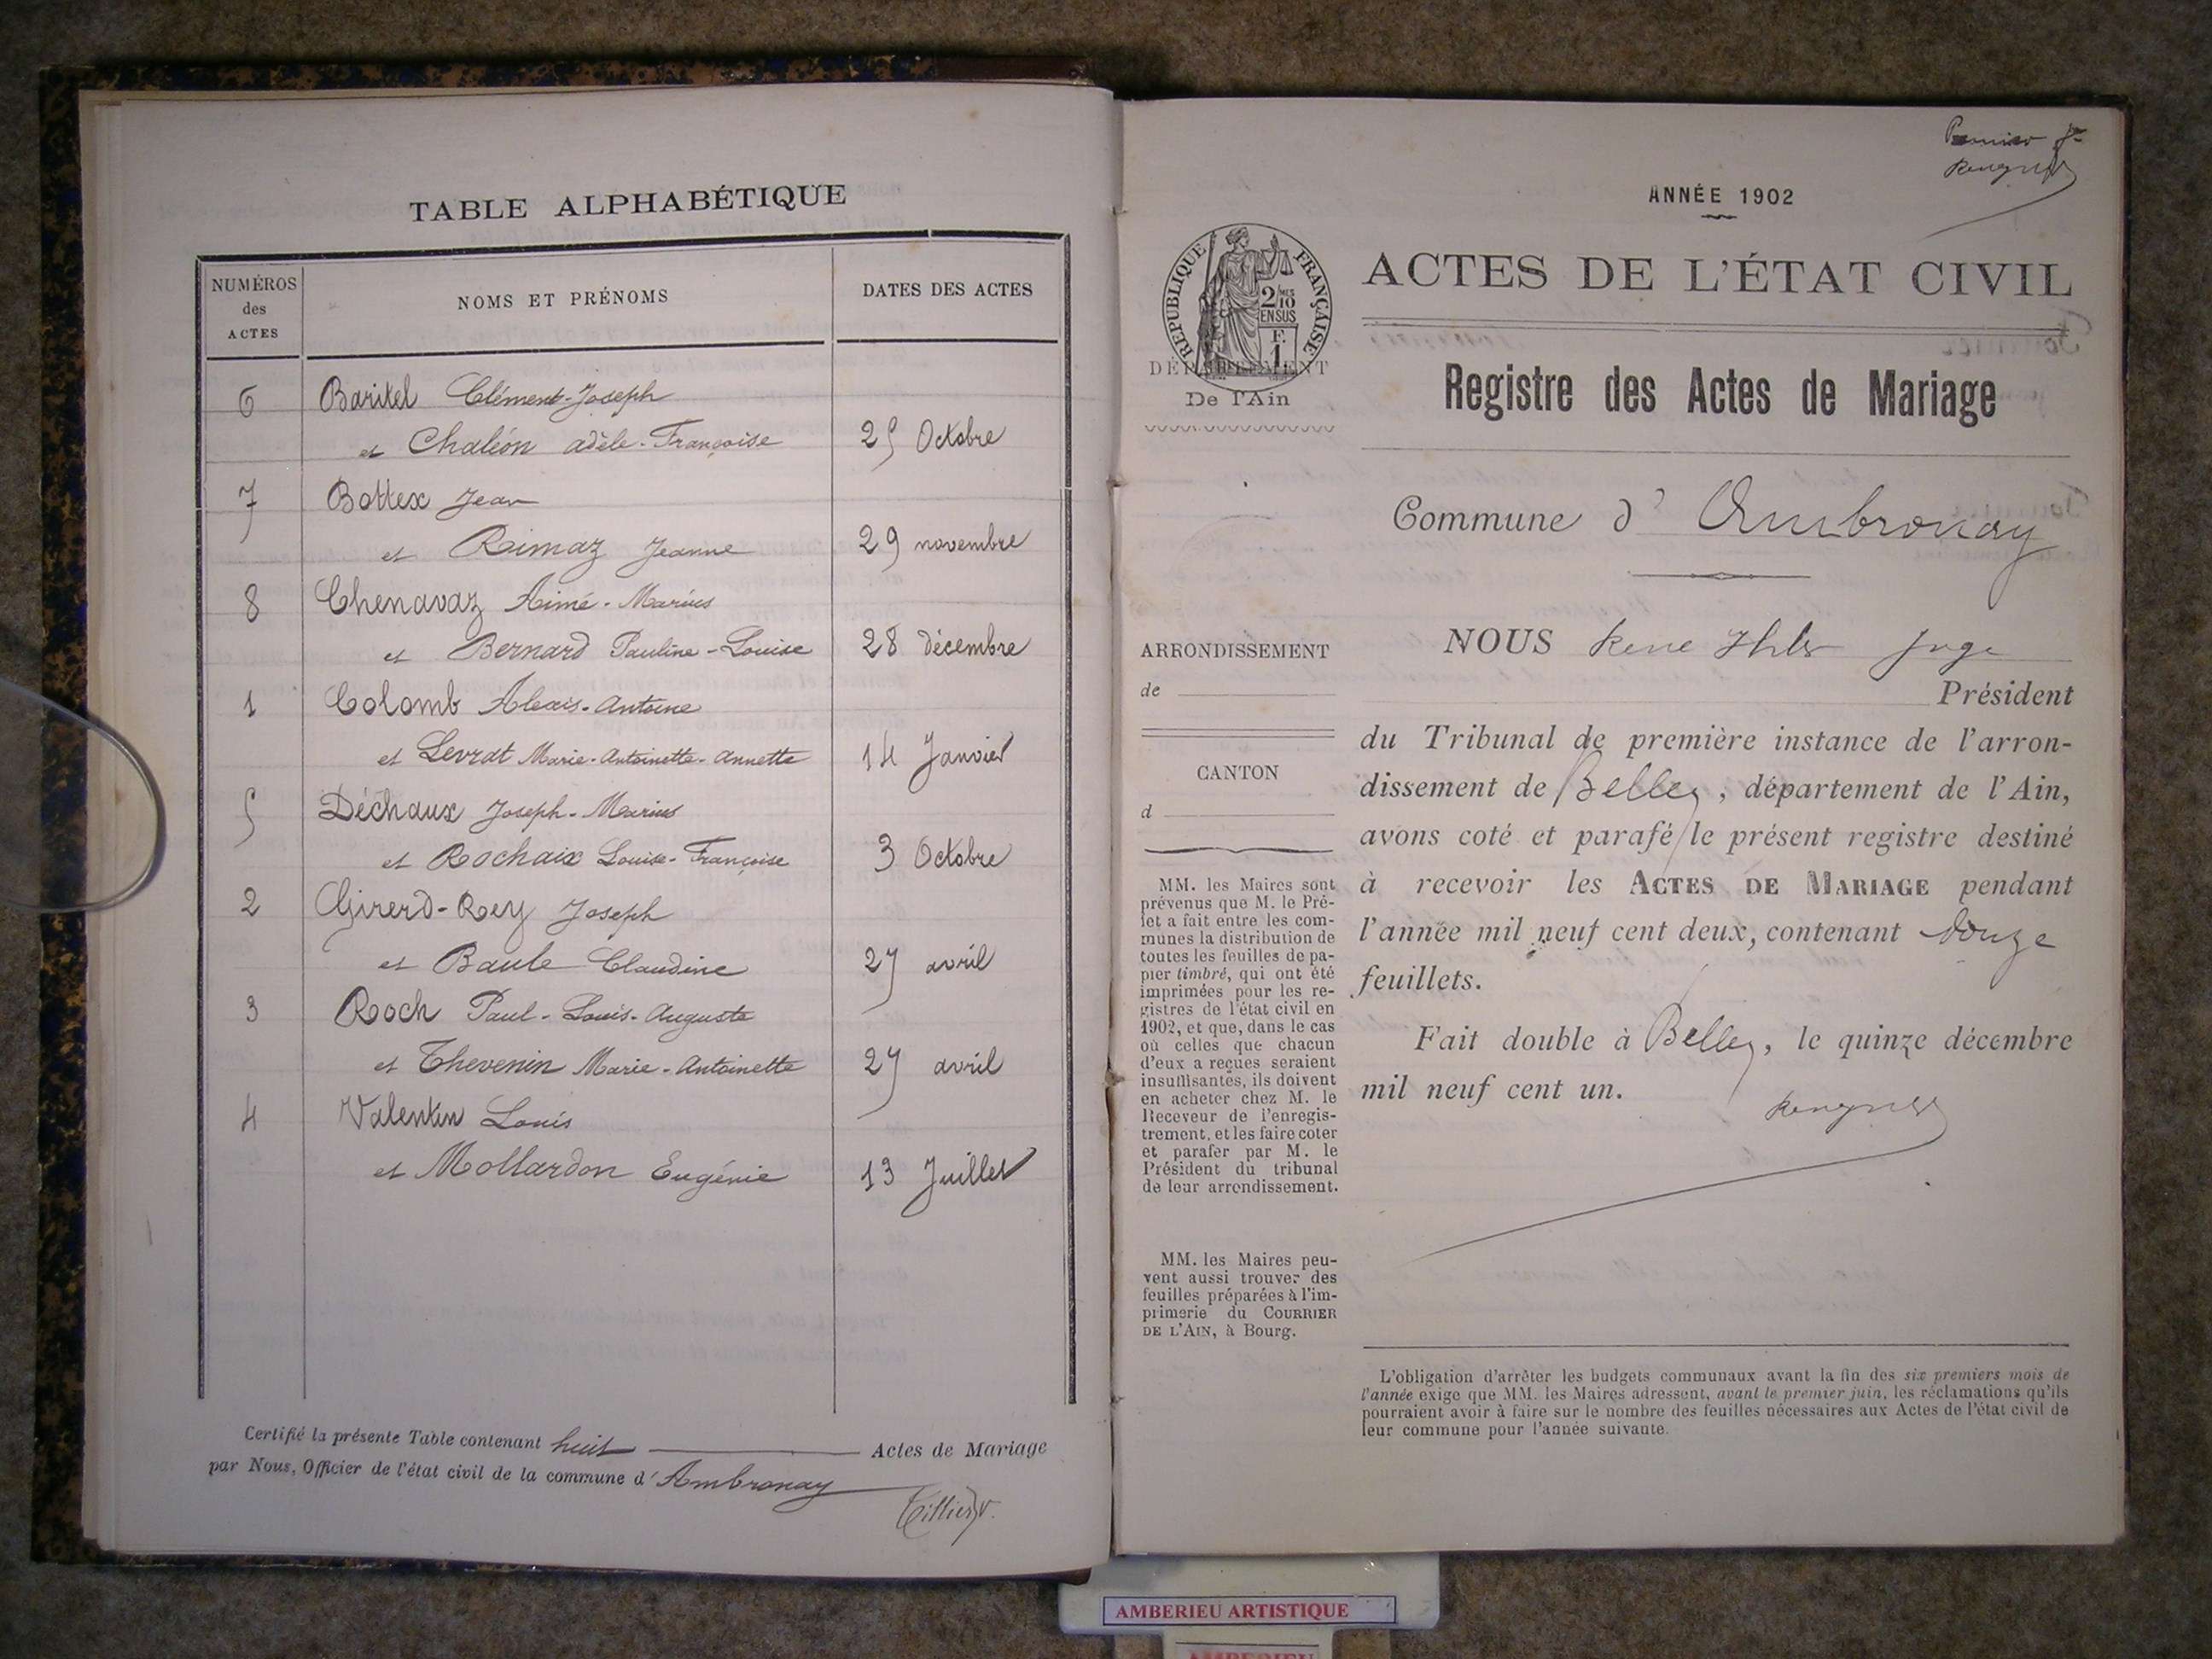 TABLE ALPHABÉTIQUE
NUMÉROS des ACTES
NOMS ET PRÉNOMS
DATES DES ACTES
6 Baritel Clément-Joseph
et Chaléon Adèle-Françoise 25 Octobre
7 Bottex Jean
et Rimaz Jeanne 29 novembre
8 Chenavaz Aimé-Marius
et Bernard Pauline-Louise 28 décembre
1 Colomb Alexis-Antoine
et Levrat Marie-Antoinette-Annette 14 Janvier
5 Déchaux Joseph-Marius
et Rochaix Louise-Françoise 3 Octobre
2 Girerd-Rey Joseph
et Baule Claudine 27 avril
3 Roch Paul-Louis-Auguste
et Thevenin Marie-Antoinette 27 avril
4 Valentin Louis
et Mollardon Eugénie 13 Juillet
Certifié la présente Table contenant huit Actes de Mariage
par Nous, Officier de l'état civil de la commune d'Ambronay
Tillier
Premier
ANNÉE 1902
RÉPUBLIQUE FRANÇAISE
2/10 MES
EN SUS
F.
1
DÉPARTEMENT
De l'Ain
ACTES DE L'ÉTAT CIVIL
Registre des Actes de Mariage
Commune d' Ambronay
ARRONDISSEMENT
de
CANTON
d
MM. les Maires sont
prévenus que M. le Pré-
fet a fait entre les com-
munes la distribution de
toutes les feuilles de pa-
pier timbré, qui ont été
imprimées pour les re-
gistres de l'état civil en
1902, et que, dans le cas
où celles que chacun
d'eux a reçues seraient
insuffisantes, ils doivent
en acheter chez M. le
Receveur de l'enregis-
trement, et les faire coter
et parafer par M. le
Président du tribunal
de leur arrondissement.
MM. les Maires peu-
vent aussi trouver des
feuilles préparées à l'im-
primerie du COURRIER
DE L'AIN, à Bourg.
NOUS René juge
Président
du Tribunal de première instance de l'arron-
dissement de Belley, département de l'Ain,
avons coté et parafé le présent registre destiné
à recevoir les ACTES DE MARIAGE pendant
l'année mil neuf cent deux, contenant douze
feuillets.
Fait double à Belley, le quinze décembre
mil neuf cent un.
L'obligation d'arrêter les budgets communaux avant la fin des six premiers mois de
l'année exige que MM. les Maires adressent, avant le premier juin, les réclamations qu'ils
pourraient avoir à faire sur le nombre des feuilles nécessaires aux Actes de l'état civil de
leur commune pour l'année suivante.
AMBERIEU ARTISTIQUE
AMBERIEU